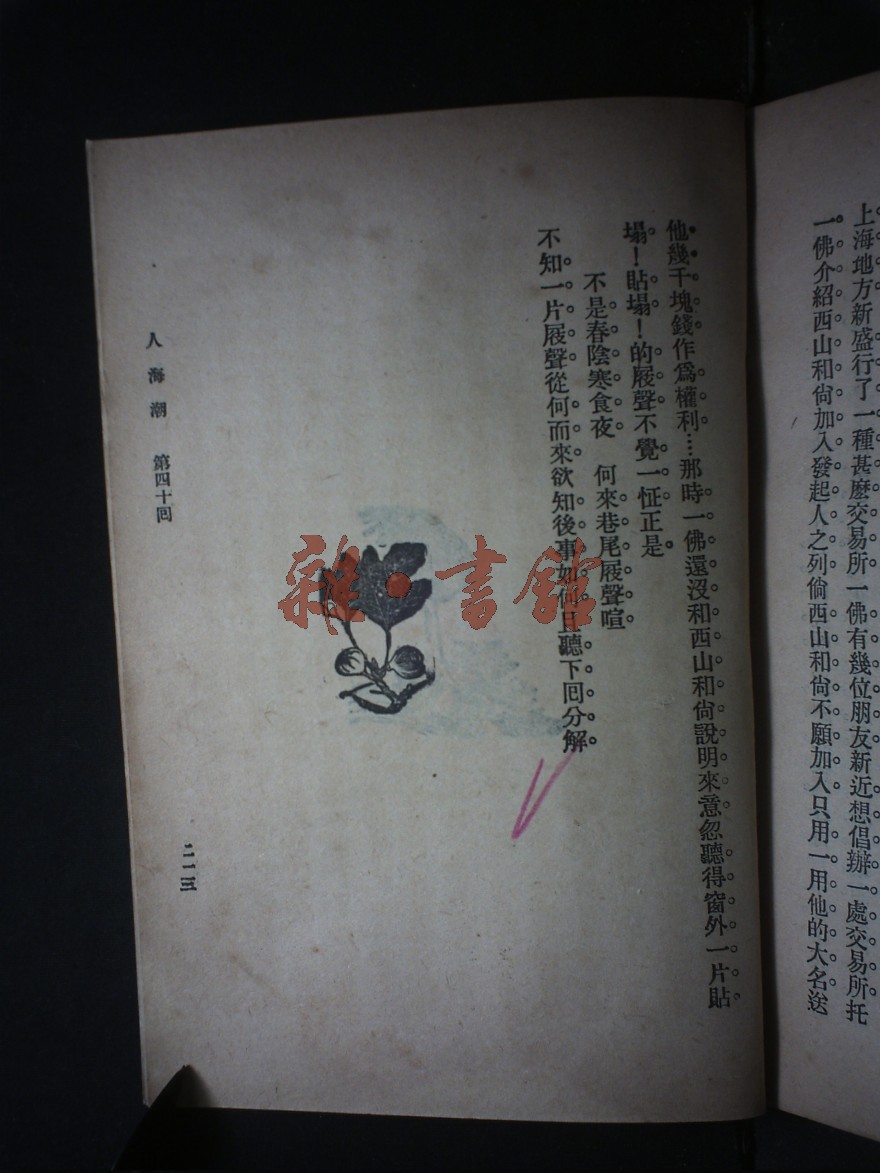 上海地方新盛行了一種甚麼交易所一佛有幾位朋友新近想倡辦一處交易所托
一佛介紹西山和尙加入發起人之列倘西山和尙不願加入只用一用他的大名送
他幾千塊錢作爲權利…那時一佛還沒和西山和尙說明來意忽聽得窗外一片貼
塌！貼塌！的屐聲不覺一怔正是
不是春陰寒食夜　何來巷尾屐聲喧
不知一片屐聲從何而來欲知後事如何且聽下回分解
人海潮　第四十回
二一三
雜·書館